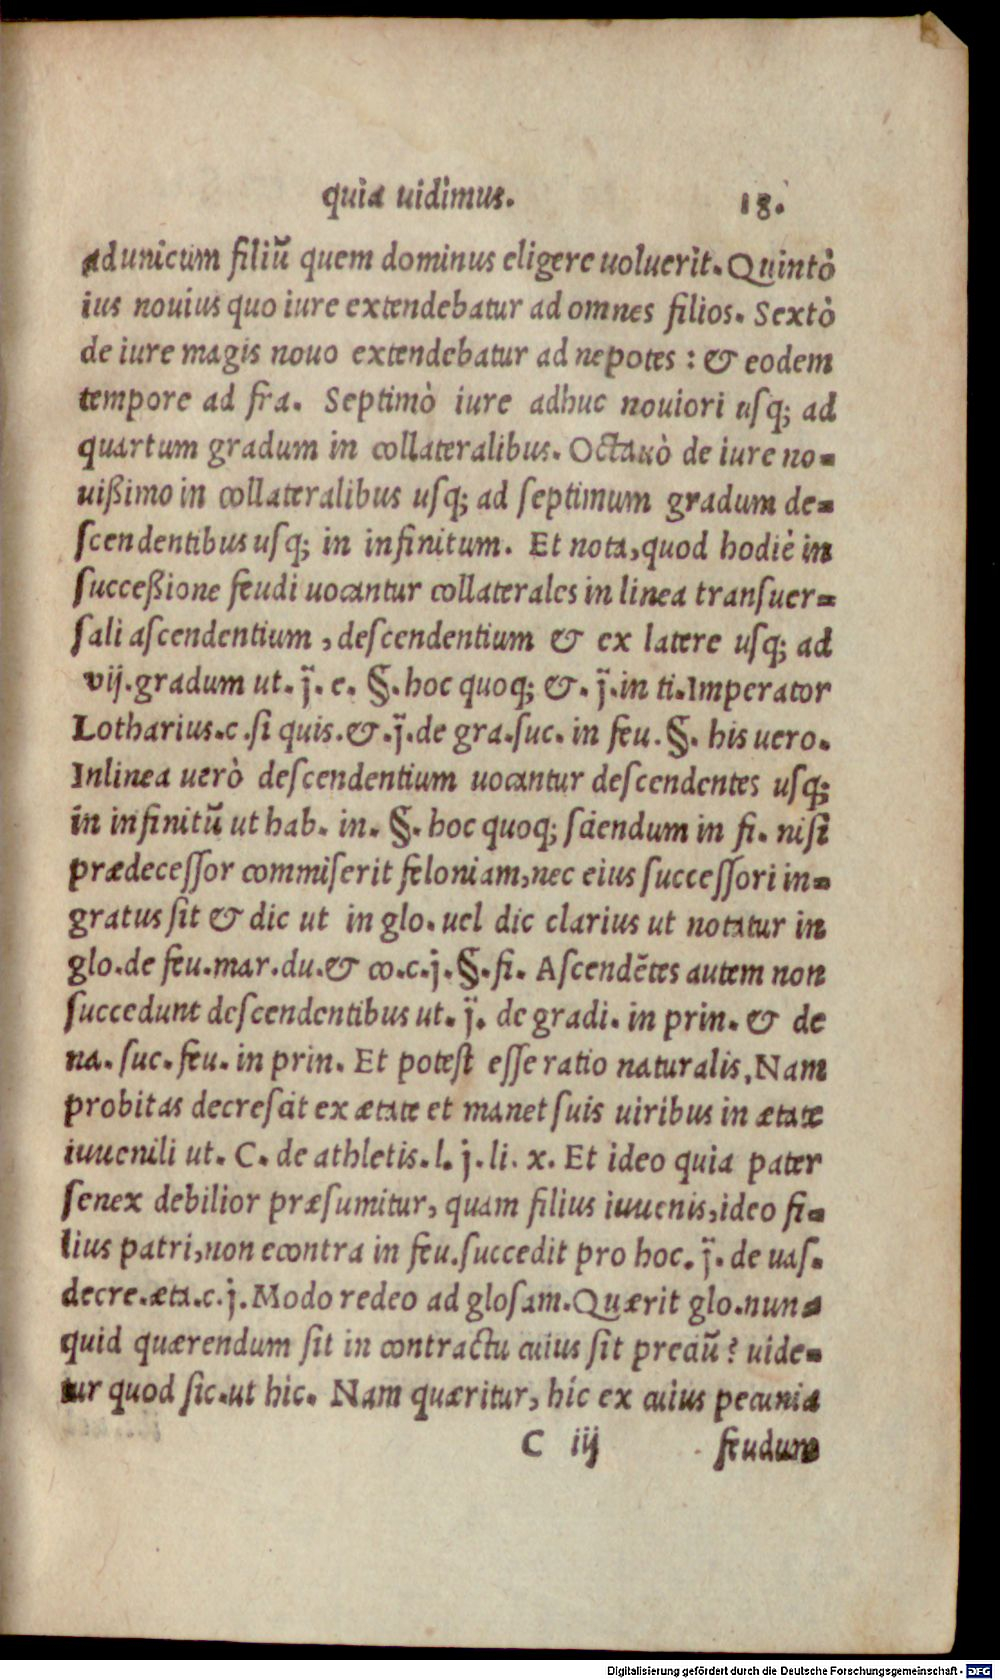 quia uidimus. 18.
ad unicum filiũ quem dominus eligere uoluerit. Quintò
ius nouius quo iure extendebatur ad omnes filios. Sextò
de iure magis nouo extendebatur ad nepotes : & eodem
tempore ad fra. Septimò iure adhuc nouiori usq; ad
quartum gradum in collateralibus. Octauò de iure no=
uißimo in collateralibus usq; ad septimum gradum de=
scendentibus usq; in infinitum. Et nota, quod hodiè in
succeßione feudi uocantur collaterales in linea transuer=
sali ascendentium , descendentium & ex latere usq; ad
vij. gradum ut. j̈. e. §. hoc quoq; &. j̈. in ti. Imperator
Lotharius. c. si quis. &. j̈. de gra. suc. in feu. §. his uero.
In linea uerò descendentium uocantur descendentes usq;
in infinitũ ut hab. in. §. hoc quoq; sciendum in fi. nisi
prædecessor commiserit feloniam, nec eius successori in=
gratus sit & dic ut in glo. uel dic clarius ut notatur in
glo. de feu. mar. du. & co. c. j. §. fi. Ascendẽtes autem non
succedunt descendentibus ut. j̈. de gradi. in prin. & de
na. suc. feu. in prin. Et potest esse ratio naturalis, Nam
probitas decrescit ex ætate et manet suis uiribus in ætate
iuuenili ut. C. de athletis. l. j. li. x. Et ideo quia pater
senex debilior præsumitur, quam filius iuuenis, ideo fi=
lius patri, non econtra in feu. succedit pro hoc. j̈. de uas.
decre. æta. c. j. Modo redeo ad glosam. Quærit glo. nun=
quid quærendum sit in contractu cuius sit preciũ? uide=
tur quod sic. ut hic. Nam quæritur, hic ex cuius pecunia
C iij feudum
Digitalisierung gefördert durch die Deutsche Forschungsgemeinschaft - DFG